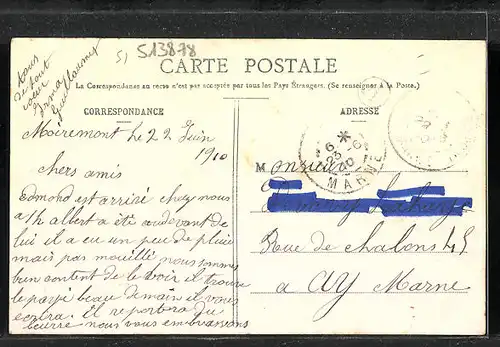 5) 513878
CARTE POSTALE
La Correspondance au recto n'est pas acceptée par tous les Pays Étrangers. (Se renseigner à la Poste.)
CORRESPONDANCE
ADRESSE
Moiremont le 22 Juin
1910
chers amis
Edmond est arrivé chez nous
a 7h albert a été audevant de
lui il a eu un peu de pluie
mais pas mouillé nous sommes
bien content de le voir il trouve
le payé beau demain il vous
ecrira. il reportera du
beurre nous vous embrassons
tous
de tout
cœur
Irma
Monsieur
Rue de chalons 45
a Ay Marne
MARNE